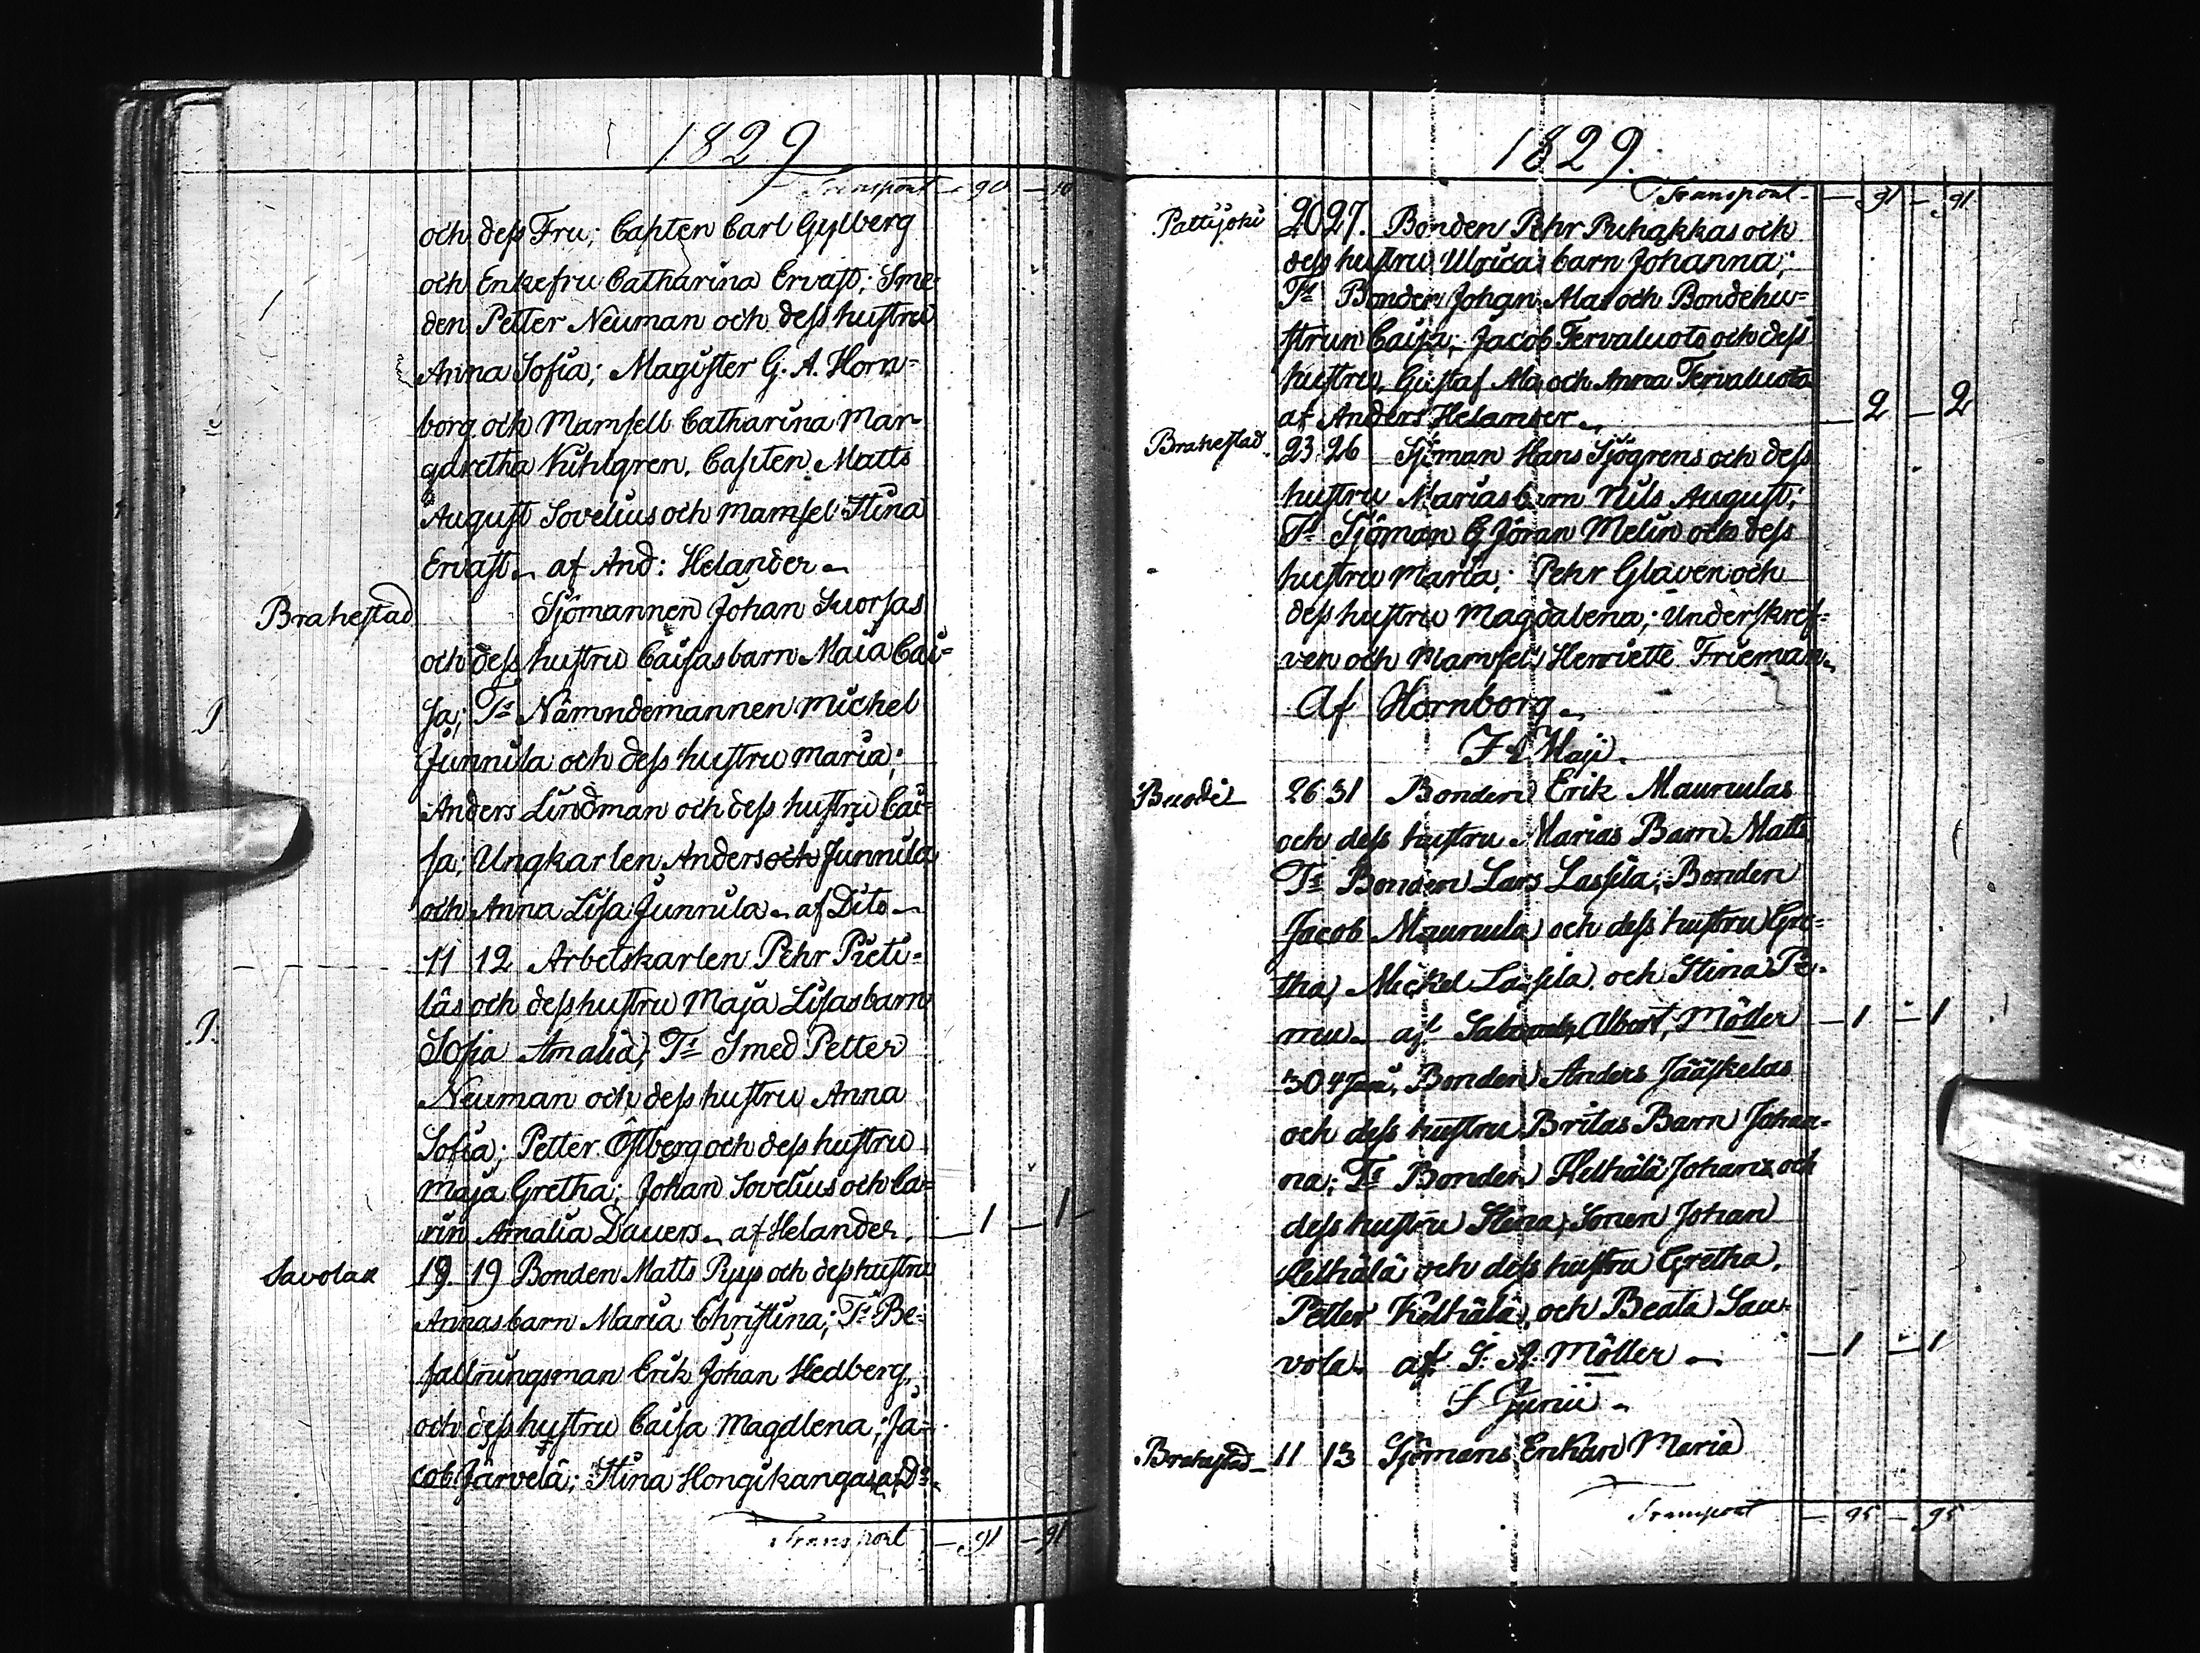 1829
Transport 90 - 90
och dess Fru; Capten Carl Gylberg
och Enkefru Catharina Ervast; Sme-
den Petter Neuman och dess hustru
Anna Sofia; Magister G. A. Horn-
borg och Mamsell Catharina Mar-
garetha Kuhlgren. Capten Matts
August Sovelius och mamsel Stina
Ervast. af And: Helander
Brahestad Sjömannen Johan Suorsas
och dess hustru Caisas barn Maia Cai-
sa; Ts Nämndemannen Michel
Junnila och dess hustru Maria;
Anders Lindman och dess hustru Cai-
sa; Ungkarlen Anders och Junnila
och Anna Lisa Junnila af Dito
11 12 Arbetskarlen Pehr Pieti-
läs och dess hustru Maja Lisas barn
Sofia Amalia; Ts Smed Petter
Neuman och dess hustru Anna
Sofia; Petter Östberg och dess hustru
Maja Gretha; Johan Sovelius och Ca-
rin Amalia Dauers. af Helander. 1 - 1
Savolax 19 19 Bonden Matts Pyys och dess hustru
Annas barn Maria Christina; Ts Be-
fallningsman Erik Johan Hedberg,
och dess hustru Caisa Magdlena; Ja-
cob Järvelä; Stina Hongikangas, af Do
Transport 91 - 91
1829.
Transport 91 - 91
Pattijoki 20 27. Bonden Pehr Puhakkas och
dess hustru Ulricas barn Johanna;
Ts Bonden Johan Ala och Bondehu-
strun Caisa; Jacob Tervaluoto och dess
hustru, Gustaf Ala och Anna Tervaluoto
af Anders Helander 2 - 2
Brahestad. 23 26 Sjöman Hans Sjögrens och dess
hustru Marias barn Nils August;
Ts Sjöman G Jöran Melin och dess
hustru Maria; Pehr Glaven och
dess hustru Magdalena; Underskref-
ven och Mamsell Henriette Frieman
Af Hornborg
I Maji.
26 31 Bonden Erik Maunulas
och dess hustru Marias Barn Matts
Ts Bonden Lars Lassila; Bonden
Jacob Maunula och dess hustru Gre-
tha, Mickel Lassila och Stina Pe-
mu. af Albert Möller 1 - 1
30 4 Juni, Bonden Anders Jääskelas
och dess hustru Britas Barn Johan-
na; Ts Bonden Kelhälä Johan och
dess hustru Stina, Sonen Johan
Kelhälä och dess hustru Gretha,
Petter Kelhälä, och Beata Sau-
vola. af S. A. Möller 1 - 1
I Junii
Brahestad 11 13 Sjömans Enkan Maria
Transport 95 - 95